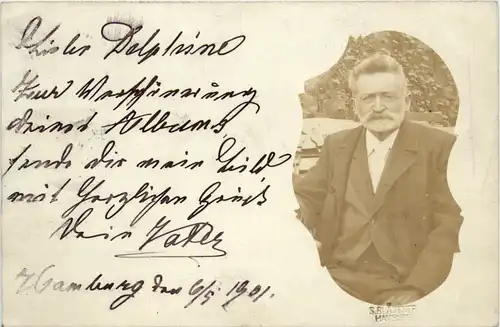 Liebe Delphine
Zur Verschönerung
deines Albums
sende dir mein Bild
mit herzlichen Gruß
Dein Vater
Hamburg den 6/5 1901.